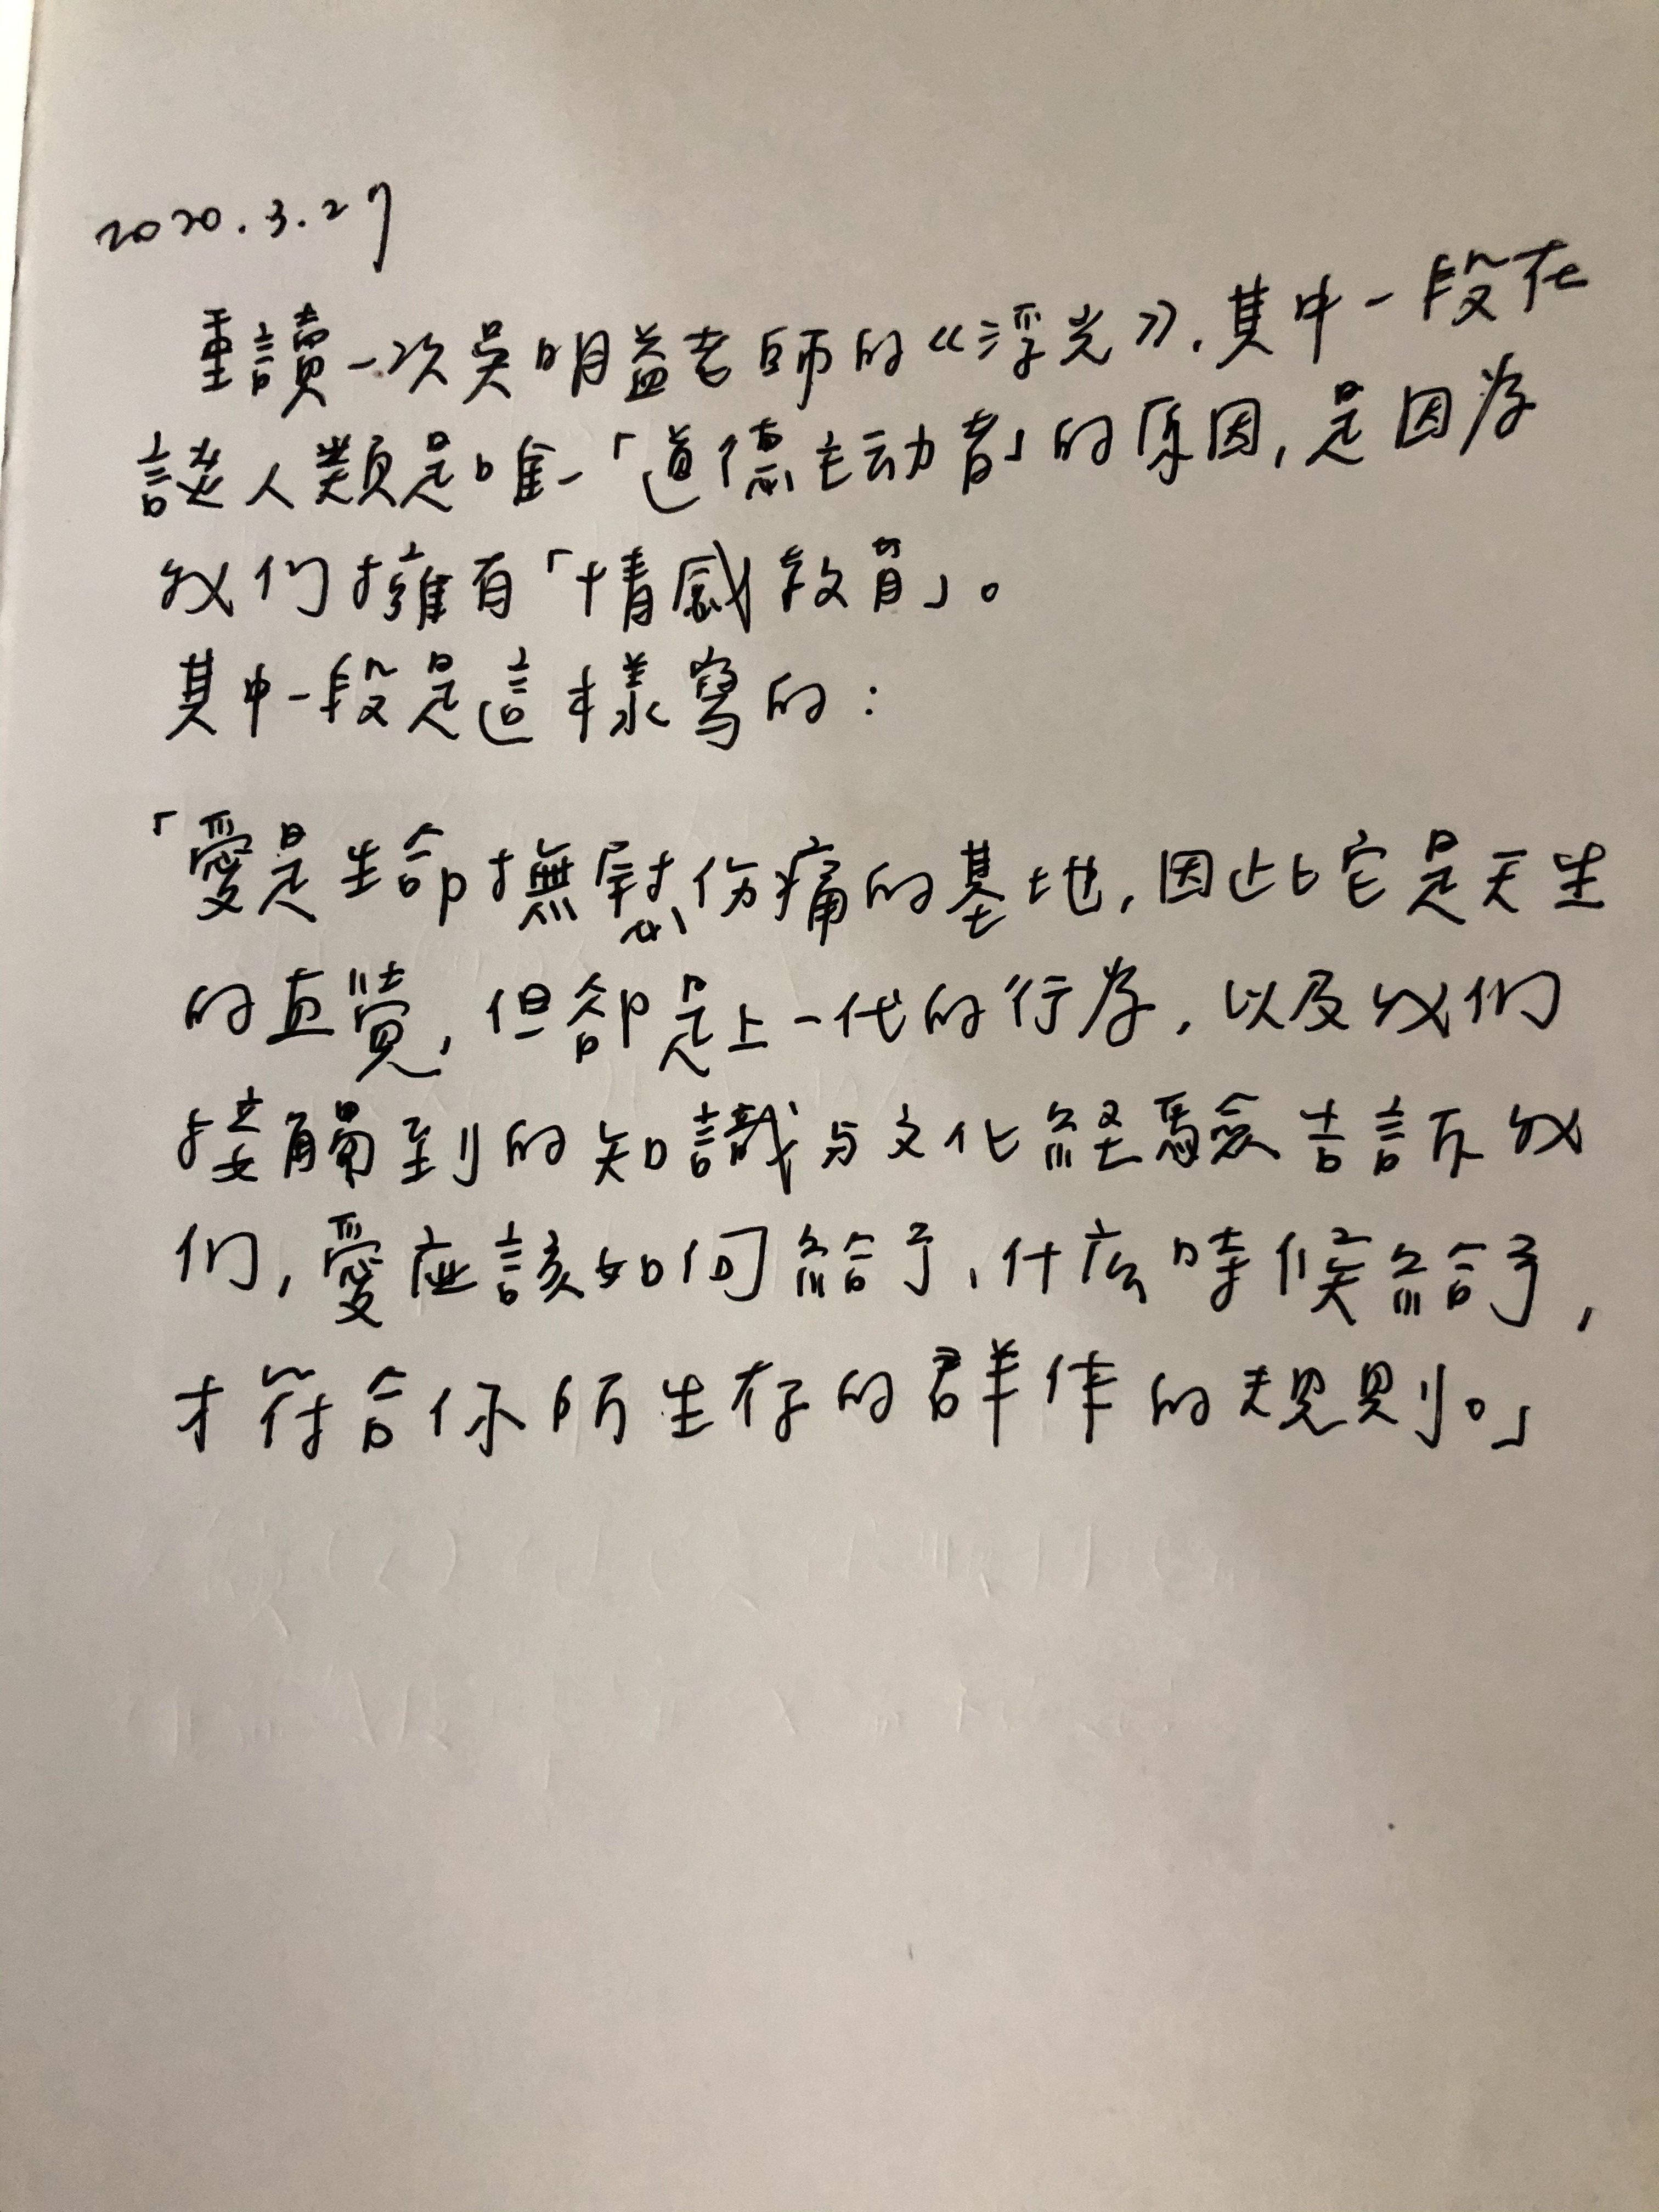 2020.3.27
重讀一次吳明益老師的《浮光》,其中一段在
談人類是唯一「道德主动者」的原因,是因为
我们擁有「情感教育」。
其中一段是這樣寫的:
「愛是生命撫慰伤痛的基地,因此它是天生
的直覺,但卻是上一代的行为,以及我们
接觸到的知識与文化経驗告訴我
们,愛应該如何給予,什么時候給予,
才符合你所生存的群体的規則。」